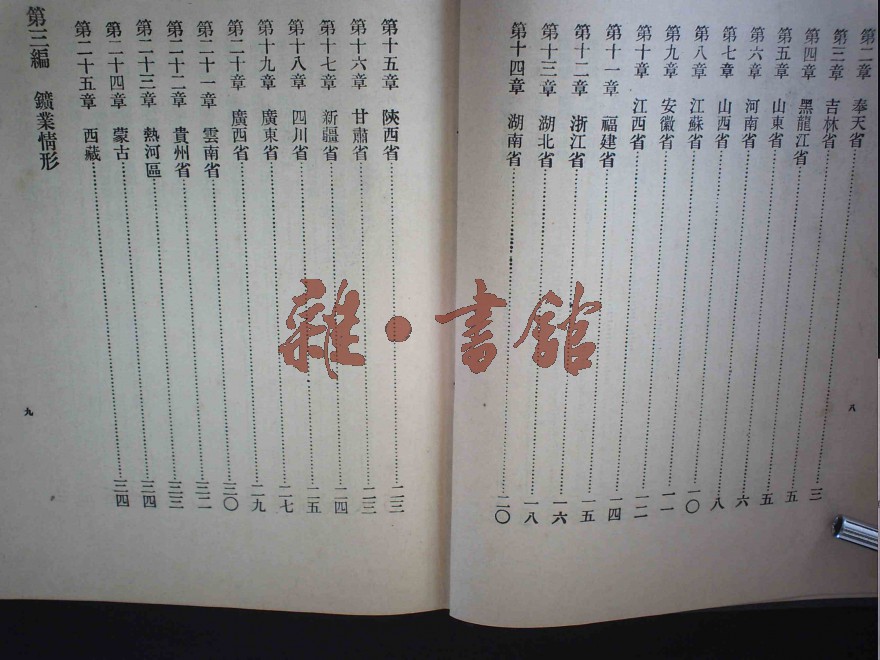 第二章 奉天省……三
第三章 吉林省……五
第四章 黑龍江省……五
第五章 山東省……六
第六章 河南省……八
第七章 山西省……一〇
第八章 江蘇省……一一
第九章 安徽省……一二
第十章 江西省……一四
第十一章 福建省……一五
第十二章 浙江省……一六
第十三章 湖北省……一八
第十四章 湖南省……二〇
八
第十五章 陝西省……二三
第十六章 甘肅省……二三
第十七章 新疆省……二四
第十八章 四川省……二五
第十九章 廣東省……二七
第二十章 廣西省……二九
第二十一章 雲南省……三〇
第二十二章 貴州省……三二
第二十三章 熱河區……三三
第二十四章 蒙古……三四
第二十五章 西藏……三四
第三編 鑛業情形
九
雜·書館